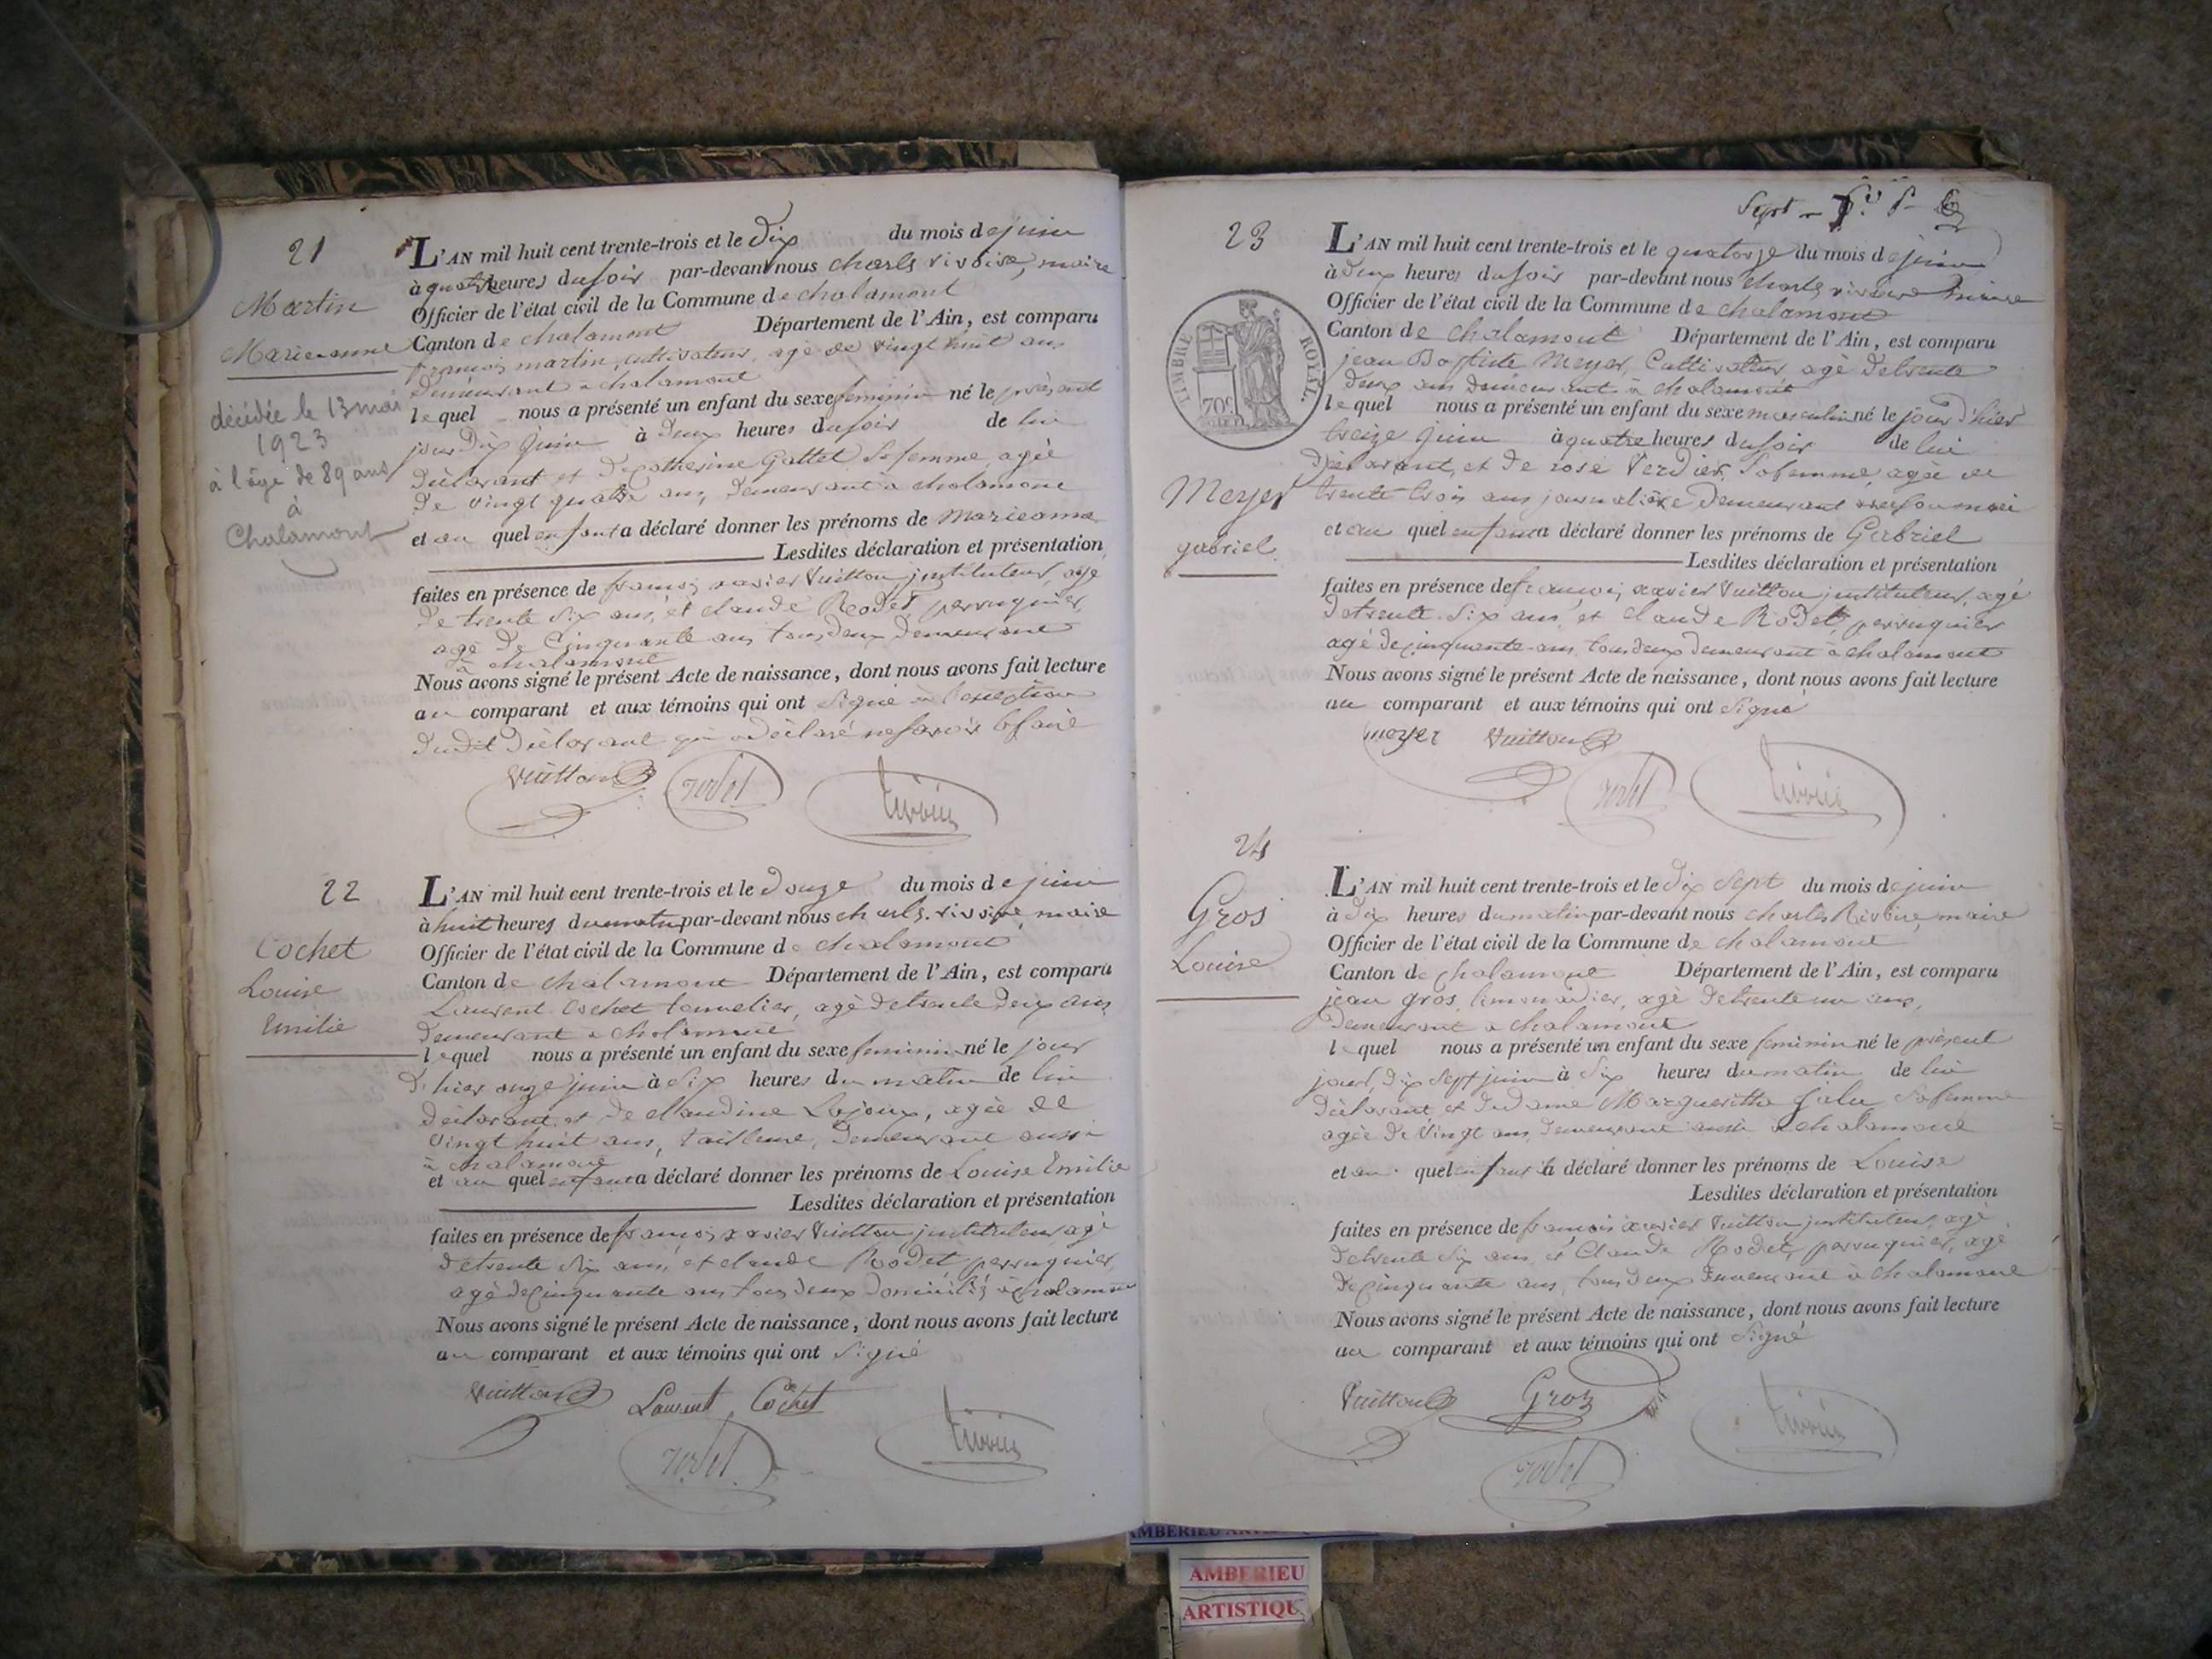 21
Martin
Marieanne
décédée le 13 mai
1923
à l'âge de 89 ans
à
Chalamont
L'AN mil huit cent trente-trois et le Dix du mois de juin
à quatre heures du soir par-devant nous charles rivoire, maire
Officier de l'état civil de la Commune de chalamont
Canton de chalamont Département de l'Ain, est comparu
françois martin, cultivateur, agé de vingt huit ans
demeurant à chalamont
lequel nous a présenté un enfant du sexe feminin né le présent
jour Dix juin à Deux heures du soir de lui
Déclarant et de catherine Gattet sa femme, agée
de vingt quatre ans, demeurant à chalamont
et au quel enfant a déclaré donner les prénoms de Marieanne
Lesdites déclaration et présentation
faites en présence de françois xavier Vuitton instituteur, agé
de trente six ans, et claude Rodet perruquier,
agé de Cinquante ans tous deux demeurant
à chalamont
Nous avons signé le présent Acte de naissance, dont nous avons fait lecture
au comparant et aux témoins qui ont signé à l'exception
dudit Déclarant qui a déclaré ne savoir le faire
Vuitton rodet rivoire
22
Cochet
Louise
Emilie
L'AN mil huit cent trente-trois et le Douze du mois de juin
à huit heures du matin par-devant nous charles rivoire, maire
Officier de l'état civil de la Commune de chalamont
Canton de chalamont Département de l'Ain, est comparu
Laurent Cochet tonnelier, agé de trente deux ans,
demeurant à chalamont
lequel nous a présenté un enfant du sexe feminin né le jour
d'hier onze juin à Six heures du matin de lui
déclarant, et de claudine Lajoux, agée de
vingt huit ans, tailleuse, demeurant aussi
à chalamont
et au quel enfant a déclaré donner les prénoms de Louise Emilie
Lesdites déclaration et présentation
faites en présence de françois xavier Vuitton instituteur agé
de trente six ans, et claude Rodet perruquier,
agé de cinquante ans tous deux domiciliés à chalamont
Nous avons signé le présent Acte de naissance, dont nous avons fait lecture
au comparant et aux témoins qui ont signé
Vuitton Laurent Cochet
rodet rivoire
Sept
23
TIMBRE ROYAL.
70c
Meyer
gabriel
L'AN mil huit cent trente-trois et le quatorze du mois de juin
à deux heures du soir par-devant nous charles rivoire maire
Officier de l'état civil de la Commune de chalamont
Canton de chalamont Département de l'Ain, est comparu
jean Baptiste Meyer, Cultivateur agé de trente
deux ans demeurant à chalamont
lequel nous a présenté un enfant du sexe masculin né le jour d'hier
treize juin à quatre heures du soir de lui
Déclarant, et de rose Verdier, sa femme, agée de
trente trois ans journalière demeurant avec son mari
et au quel enfant a déclaré donner les prénoms de Gabriel
Lesdites déclaration et présentation
faites en présence de françois xavier Vuitton instituteur, agé
de trente six ans, et claude Rodet, perruquier
agé de cinquante ans, tous deux demeurant à chalamont
Nous avons signé le présent Acte de naissance, dont nous avons fait lecture
au comparant et aux témoins qui ont signé
meyer Vuitton
rodet rivoire
24
Gros
Louise
L'AN mil huit cent trente-trois et le Dix Sept du mois de juin
à Dix heures du matin par-devant nous charles Rivoire, maire
Officier de l'état civil de la Commune de chalamont
Canton de chalamont Département de l'Ain, est comparu
jean gros, limonadier, agé de trente un ans,
demeurant à chalamont
lequel nous a présenté un enfant du sexe feminin né le présent
jour, Dix Sept juin à Six heures du matin de lui
déclarant et de dame Margueritte Jalu sa femme
agée de vingt ans, demeurant aussi à chalamont
et au quel enfant a déclaré donner les prénoms de Louise
Lesdites déclaration et présentation
faites en présence de françois xavier Vuitton instituteur, agé
de trente six ans, et Claude Rodet, perruquier, agé
de cinquante ans, tous deux demeurant à chalamont
Nous avons signé le présent Acte de naissance, dont nous avons fait lecture
au comparant et aux témoins qui ont signé
Vuitton Gros rivoire
rodet
AMBERIEU
AMBERIEU
ARTISTIQUE